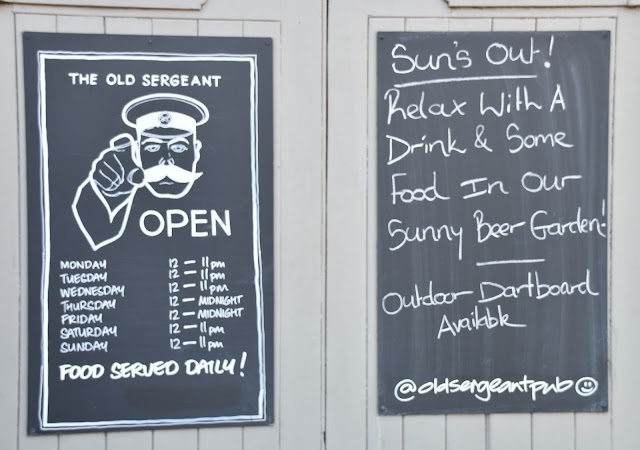 THE OLD SERGEANT
OPEN
MONDAY 12 — 11pm
TUESDAY 12 — 11pm
WEDNESDAY 12 — 11pm
THURSDAY 12 — MIDNIGHT
FRIDAY 12 — MIDNIGHT
SATURDAY 12 — 11pm
SUNDAY 12 — 11pm
FOOD SERVED DAILY!
Sun's Out!
Relax With A
Drink & Some
Food In Our
Sunny Beer Garden!
Outdoor Dartboard
Available
@oldsergeantpub ☺